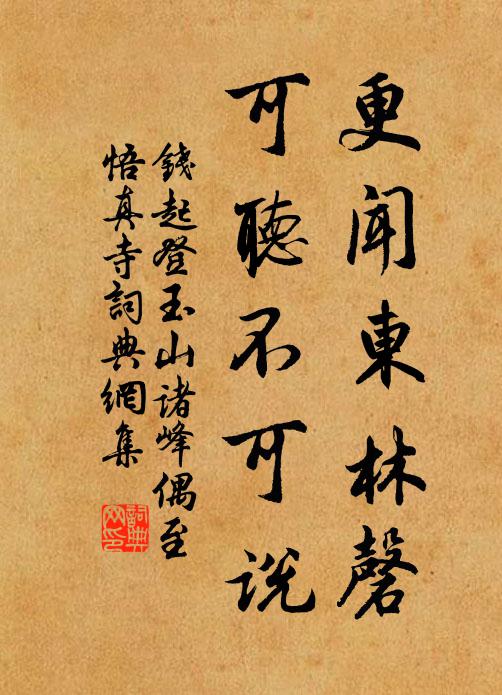 更聞東林磬
可聽不可說
錢起登玉山諸峰偶至
悟真寺詞典網集
詞典网印